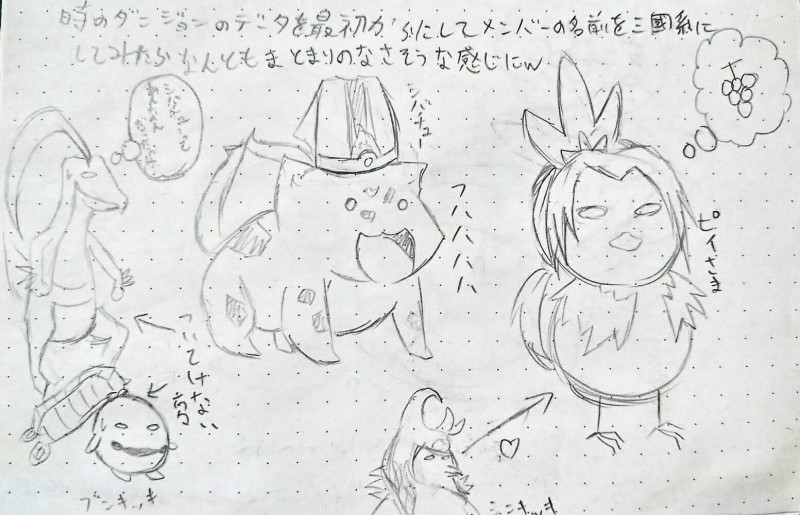 時のダンジョンのデータを最初からにしてメンバーの名前を三國系に
してみたらなんともまとまりのなさそうな感じにw
シバチュー
フハハハハハ
ピィさま
ついてけない
ブンキッキ
♡